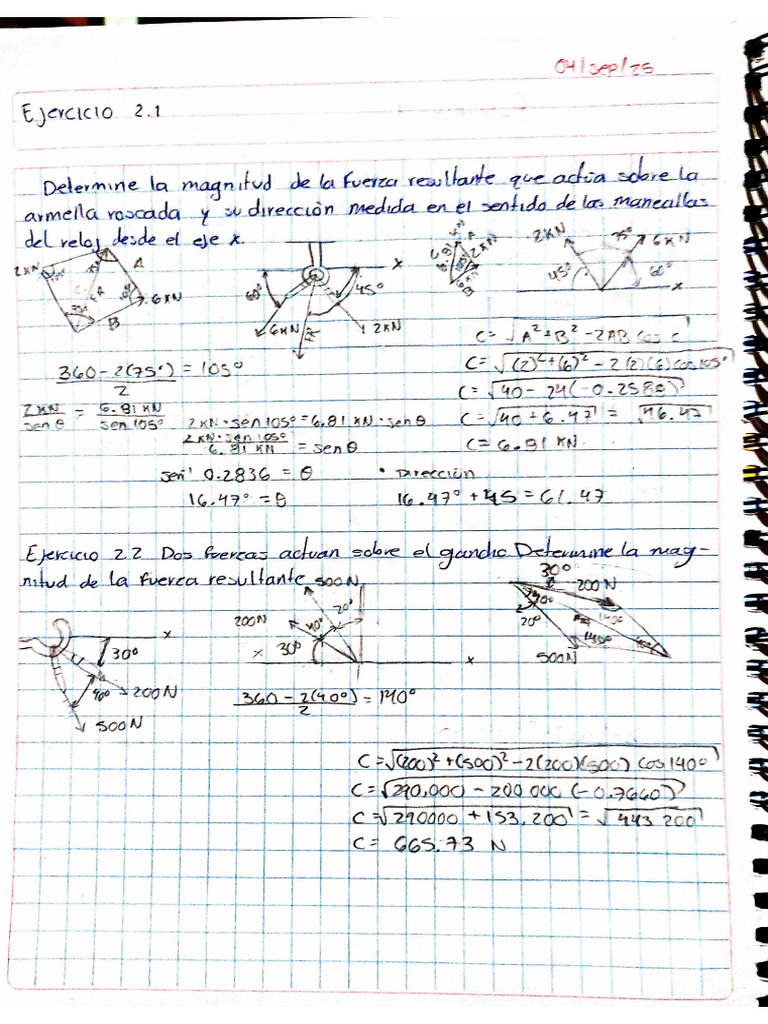 04/sep/25
Ejercicio 2.1
Determine la magnitud de la fuerza resultante que actúa sobre la
armella roscada y su dirección medida en el sentido de las manecillas
del reloj desde el eje x.
2 kN A 6 kN B FR
x 60° 45° 6 kN FR 2 kN
6.81 2 kN
2 kN 75° 6 kN 45° 60° x
360 - 2(75°) / 2 = 105°
C = √A² + B² - 2AB cos c
C = √(2)² + (6)² - 2(2)(6) cos 105°
C = √40 - 24(-0.2588)
C = √40 + 6.47 = √46.47
C = 6.81 kN.
2 kN / sen θ = 6.81 kN / sen 105°
2 kN · sen 105° = 6.81 kN · sen θ
2 kN · sen 105° / 6.81 kN = sen θ
sen⁻¹ 0.2836 = θ
16.47° = θ
• Dirección
16.47° + 45 = 61.47
Ejercicio 2.2 Dos fuerzas actuan sobre el gancho. Determine la mag-
nitud de la fuerza resultante
x 30° 40° 200 N 500 N
500 N 20° 200 N 40° 30° x x
30° 200 N 40° 20° 140° 500 N
360 - 2(40°) / 2 = 140°
C = √(200)² + (500)² - 2(200)(500) cos 140°
C = √290,000 - 200 000 (-0.7660)
C = √290000 + 153,200 = √443 200
C = 665.73 N